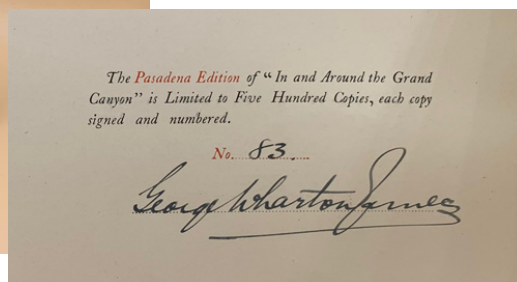 The Pasadena Edition of "In and Around the Grand
Canyon" is Limited to Five Hundred Copies, each copy
signed and numbered.
No. 83.
George Wharton James